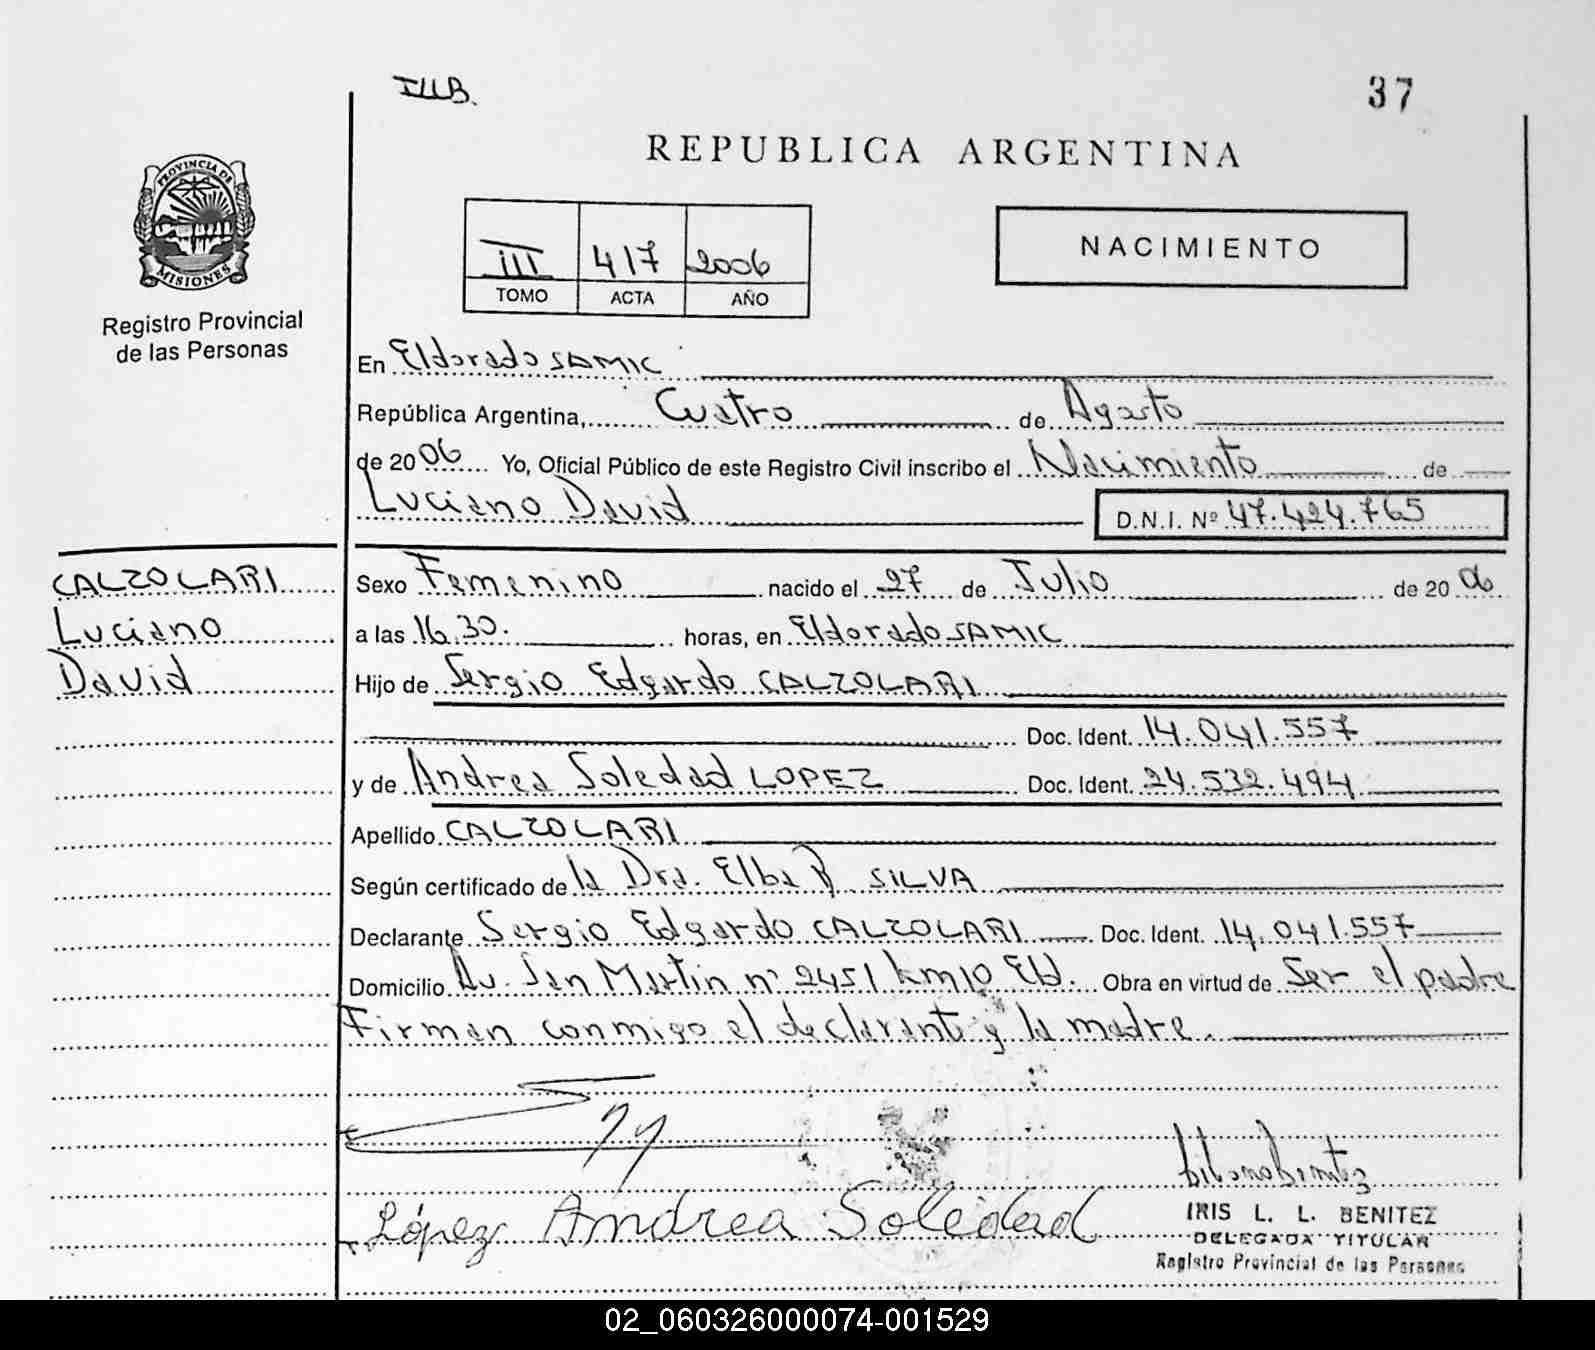 I.LL.B.
37
PROVINCIA DE
MISIONES
Registro Provincial
de las Personas
REPUBLICA ARGENTINA
III 417 2006
TOMO ACTA AÑO
NACIMIENTO
En Eldorado SAMIC
República Argentina, Cuatro de Agosto
de 2006 Yo, Oficial Público de este Registro Civil inscribo el Nacimiento de
Luciano David D.N.I. Nº 47.424.765
CALZOLARI
Luciano
David
Sexo Femenino nacido el 27 de Julio de 2006
a las 16.30. horas, en Eldorado SAMIC
Hijo de Sergio Edgardo CALZOLARI
Doc. Ident. 14.041.557
y de Andrea Soledad LOPEZ Doc. Ident. 24.532.494
Apellido CALZOLARI
Según certificado de la Dra. Elba R SILVA
Declarante Sergio Edgardo CALZOLARI Doc. Ident. 14.041.557
Domicilio Av. San Martin nº 2451 km10 Eld. Obra en virtud de Ser el padre
Firman conmigo el declarante y la madre.
López Andrea Soledad
IRIS L. L. BENITEZ
DELEGADA TITULAR
Registro Provincial de las Personas
02_060326000074-001529